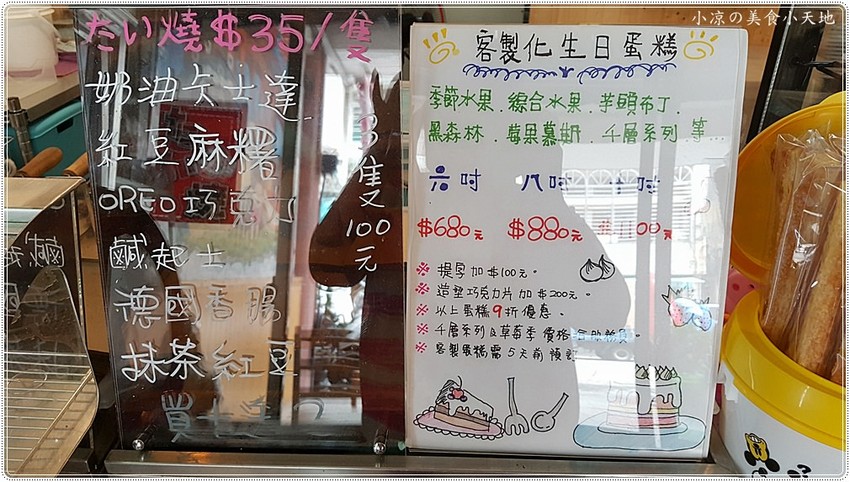 小凉の美食小天地
たい燒$35/隻
3隻100元
奶油卡士達
紅豆麻糬
OREO巧克力
鹹起士
德國香腸
抹茶紅豆
客製化生日蛋糕
季節水果.綜合水果.芋頭布丁.
黑森林.莓果慕斯.千層系列 等...
六吋 八吋 十吋
$680元 $880元 $1100元
※ 提字加$100元。
※ 造型巧克力片加$200元。
※ 以上蛋糕9折優惠。
※ 千層系列&草莓季 價格
※ 客製蛋糕需5天前預訂